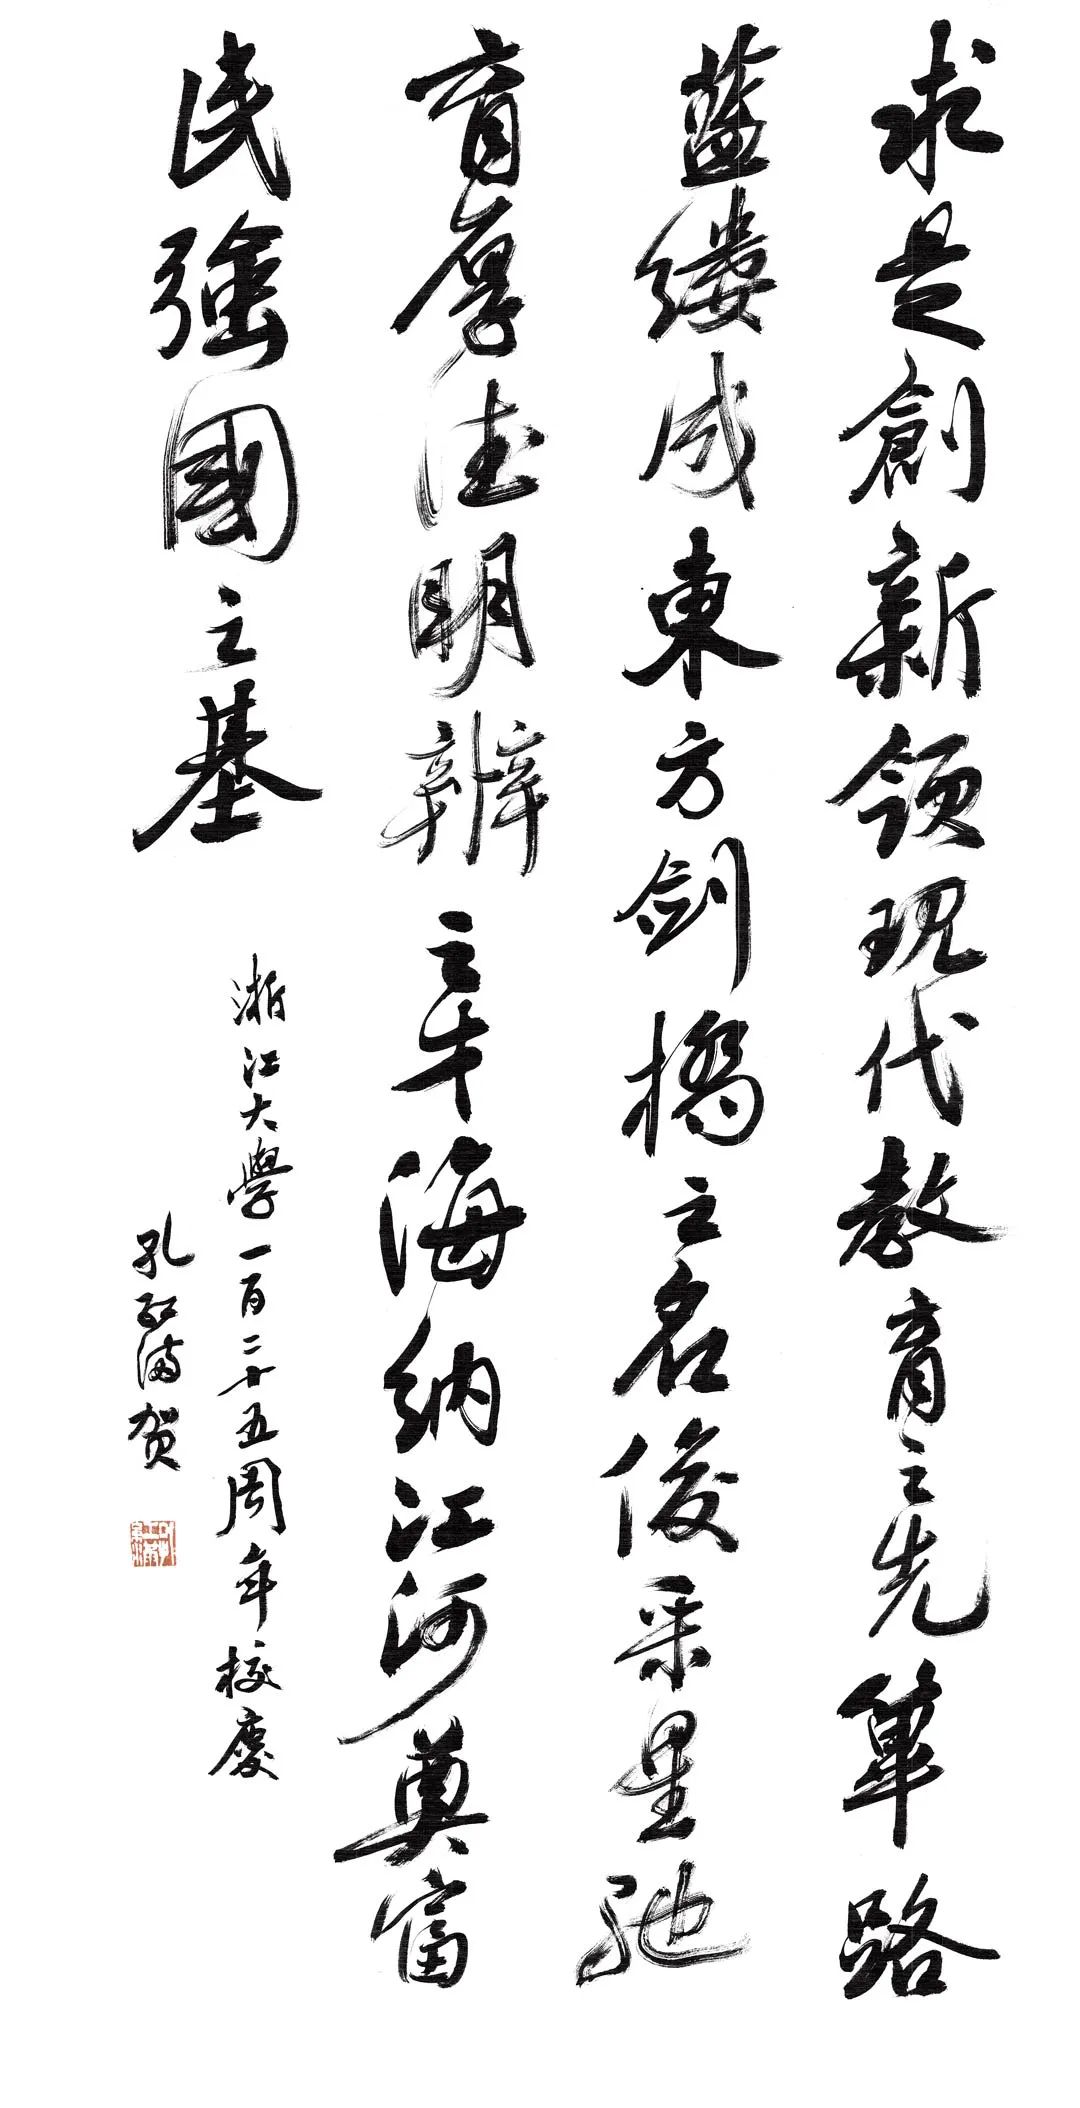 求是創新領現代教育之先篳路
藍縷成東方劍橋之名俊采星馳
育厚德明辨之才海納江河奠富
民強國之基
浙江大學一百二十五周年校慶
孔
賀